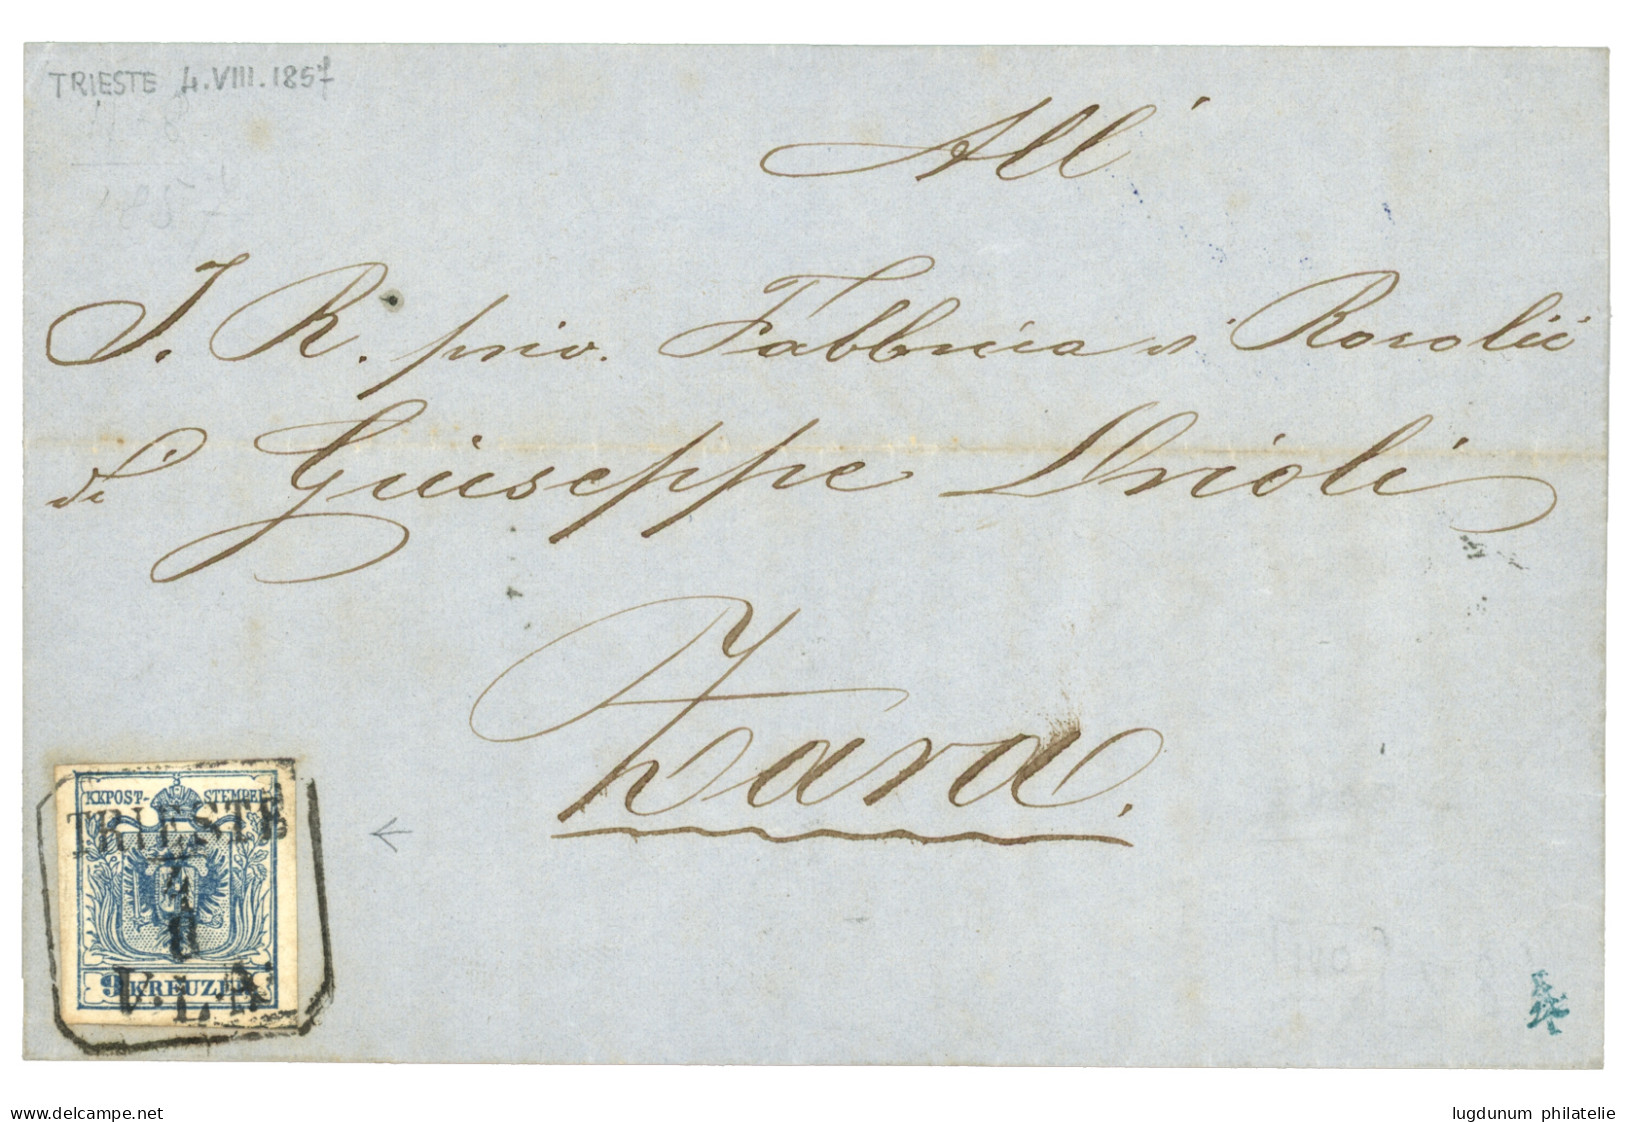 TRIESTE 4.VIII.1857
1857
All'
I. R. priv. Fabbrica di Rosolii
di Giuseppe Drioli
Zara.
KKPOST-STEMPEL
TRIESTE
4
8
V.L.A.
9 KREUZER
delcampe.net
lugdunum philatelie